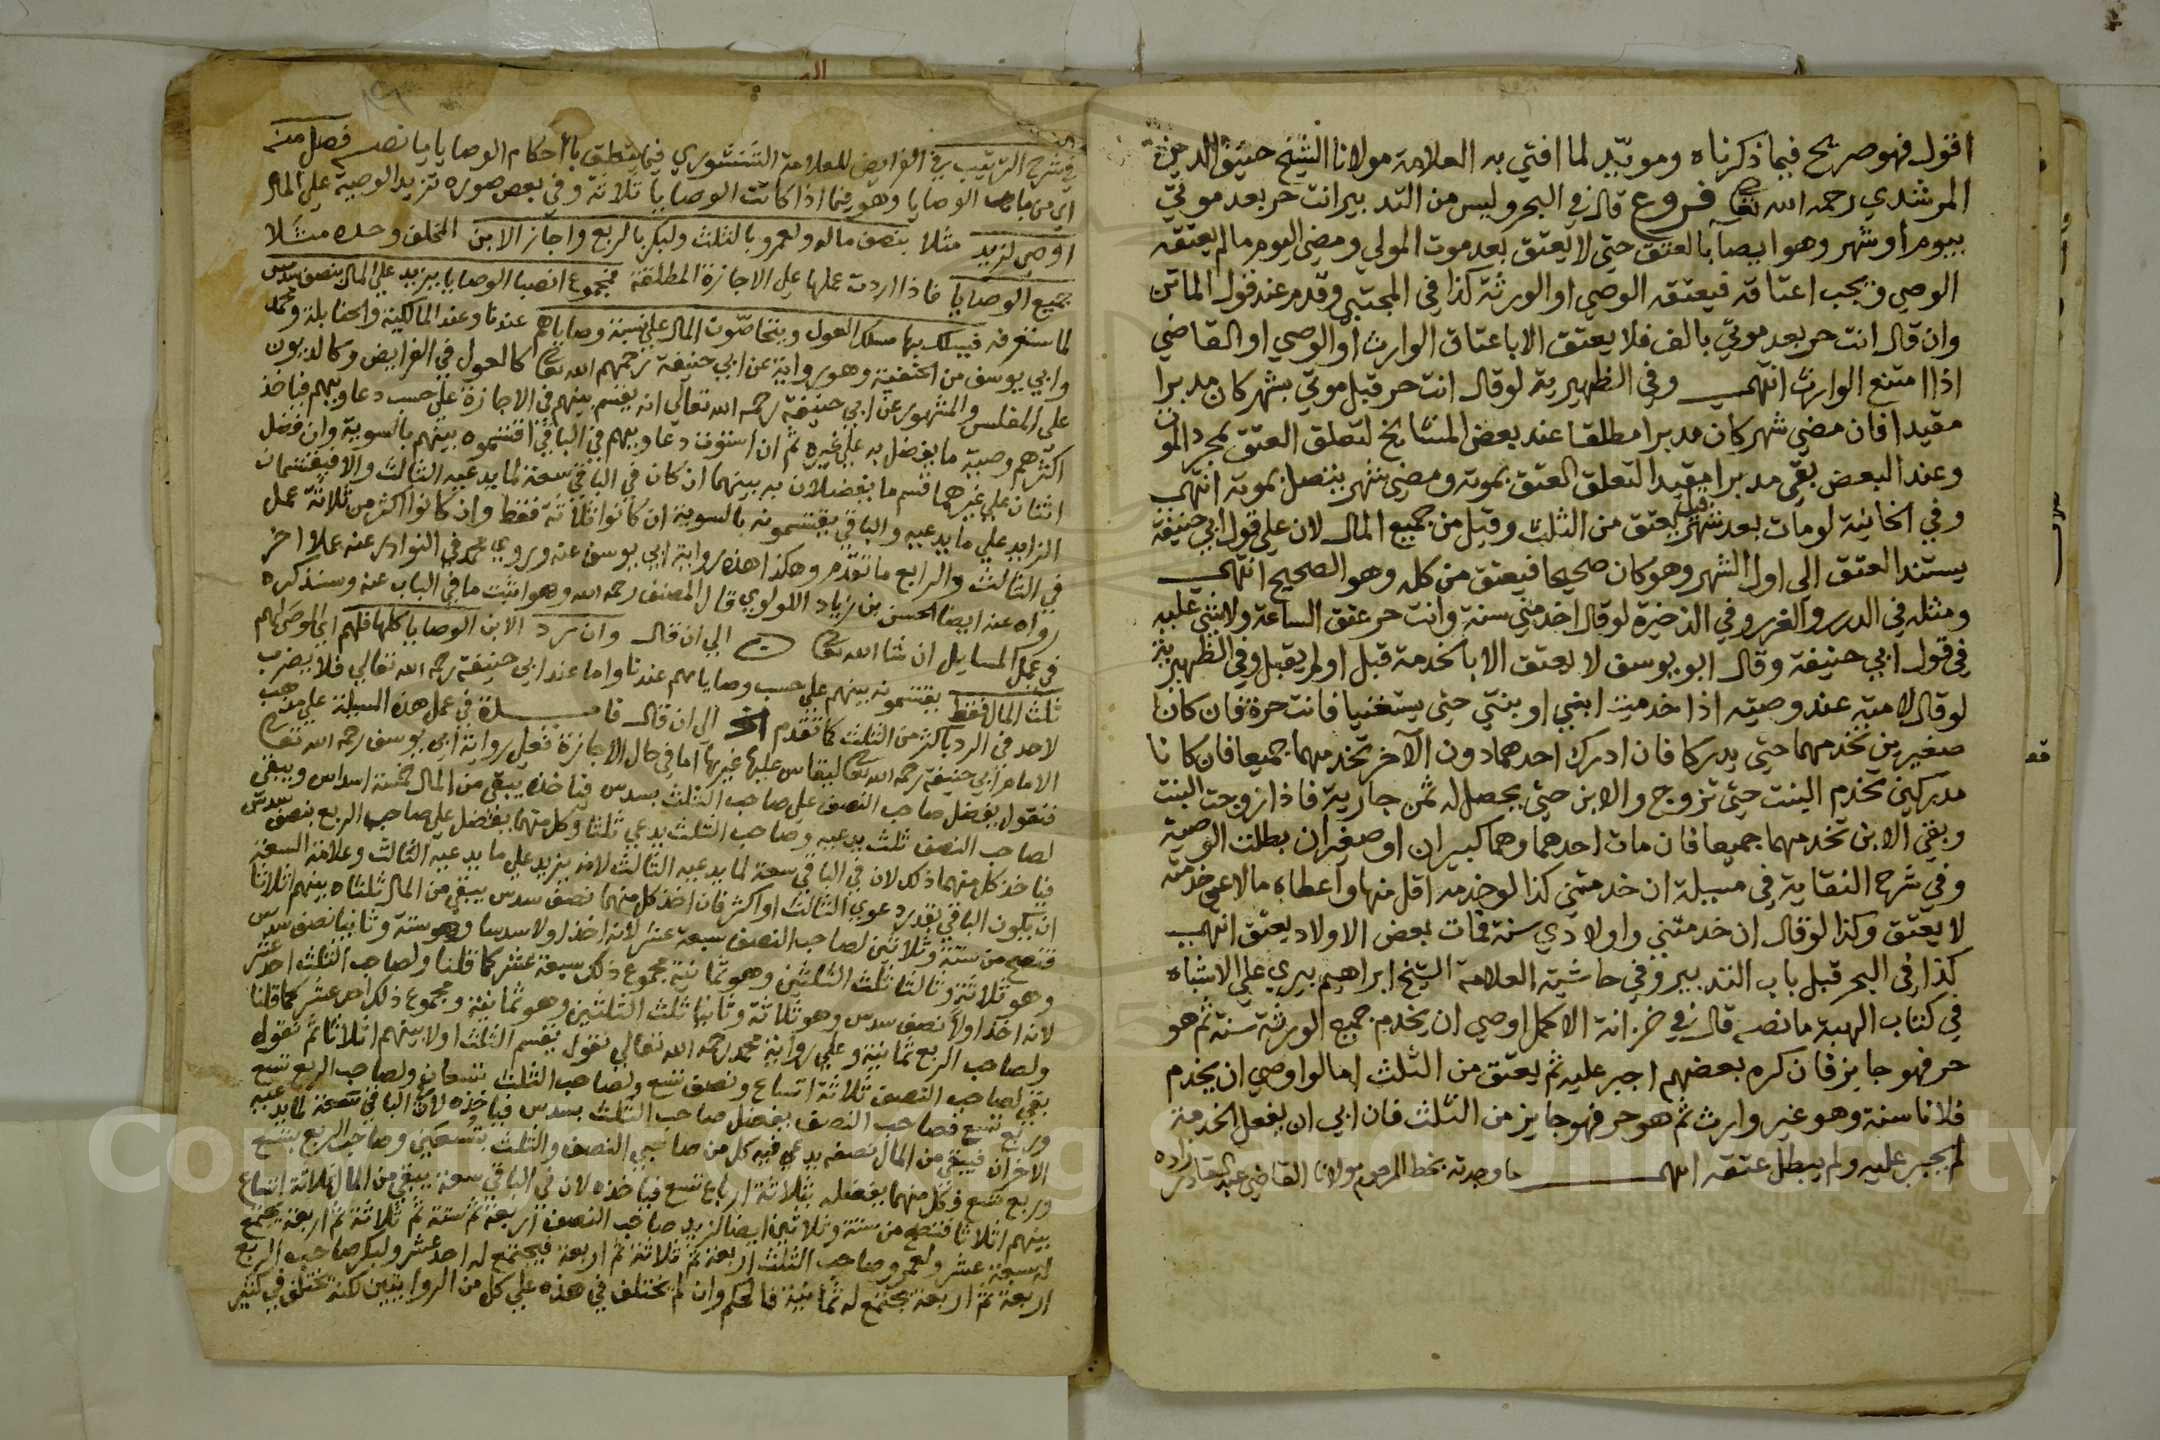 اقول فهو صريح فيما ذكرناه ومويد لما افتي به العلامة مولانا الشيخ حنيف الدين
المرشدي رحمه الله تعالى فروع قال في البحر وليس من التدبير انت حر بعد موتي
بيوم أو شهر وهو ايصا بالعتق حتى لا يعتق بعد موت المولي ومضي اليوم ما لم يعتقه
الوصي ويجب اعتاقه فيعتقه الوصي او الورثة كذا في المجتبى وقدم عند قول الماتن
وان قال انت حر بعد موتي بالف فلا يعتق الا باعتاق الوارث أو الوصي او القاضي
اذا امتنع الوارث انتهى وفي الظهيرية لو قال انت حر قبل موتي بشهر كان مدبرا
مقيدا فان مضي شهر كان مدبرا مطلقا عند بعض المشايخ لتعلق العتق بمجرد الموت
وعند البعض بقي مدبرا مقيدا لتعلق العتق بموته ومضي شهر يتصل بموته انتهى
وفي الخانية لو مات بعد شهر قيل يعتق من الثلث وقيل من جميع المال لان على قول ابي حنيفة
يستند العتق الي اول الشهر وهو كان صحيحا فيعتق من كله وهو الصحيح انتهى
ومثله في الدرر والغرر وفي الذخيرة لو قال اخدمني سنة وانت حر عتق الساعة ولا شي عليه
في قول ابي حنيفة وقال ابو يوسف لا يعتق الا بالخدمة قبل او لم يقبل وفي الظهيرية
لو قال لامته عند وصيته اذا خدمت ابني او بنتي حتى يستغنيا فانت حرة فان كان
صغيرين تخدمهما حتى يدركا فان ادرك احدهما دون الآخر تخدمهما جميعا فان كانا
مدركين تخدم البنت حتى تزوج والابن حتى يحصل له ثمن جارية فاذا زوجت البنت
وبقي الابن تخدمهما جميعا فان مات احدهما وهما كبيران او صغيران بطلت الوصية
وفي شرح النقاية في مسيلة ان خدمتني كذا لو خدمه اقل منها واعطاه مالا عن خدمته
لا يعتق وكذا لو قال ان خدمتني واولادي سنة فمات بعض الاولاد يعتق انتهى
كذا في البحر قبل باب التدبير وفي حاشية العلامة الشيخ ابراهيم بيري علي الاشباه
في كتاب الهبة ما نصه قال في خزانة الاكمل اوصي ان يخدم جميع الورثة سنة ثم هو
حر فهو جايز فان كره بعضهم اجبر عليه ثم يعتق من الثلث اما لو اوصي ان يخدم
فلانا سنة وهو غير وارث ثم هو حر فهو جايز من الثلث فان ابي ان يفعل الخدمة
لم يجبر عليه ولم يبطل عتقه انتهى ما وجدته بخط المرحوم مولانا القاضي عبد القادر زاده
في شرح الترتيب في الفرايض للعلامة الشنشوري فيما يتعلق بأحكام الوصايا ما نصه فصل منه
اي من باب الوصايا وهو فيما اذا كانت الوصايا ثلاثة وفي بعض صوره تزيد الوصية علي المال
اوصي لزيد مثلا بنصف ماله ولعمرو بالثلث ولبكر بالربع واجاز الابن المخلف وحده مثلا
جميع الوصايا فاذا اردت عملها علي الاجازة المطلقة فمجموع انصبا الوصايا يزيد علي المال بنصف سدس
لما ستعرفه فيسلك بها مسلك العول ويتحاصون المال على نسبة وصاياهم عندنا وعند المالكية والحنابلة ومحمد
وابي يوسف من الحنفية وهو رواية عن ابي حنيفة رحمهم الله تعالى كالعول في الفرايض وكالديون
على المفلس والمشهور عن ابي حنيفة رحمه الله تعالى انه يقسم بينهم في الاجازة على حسب دعاويهم فياخذ
اكثرهم وصية ما يفضل به علي غيره ثم ان استوت دعاويهم في الباقي اقتسموه بينهم بالسوية وان فضل
اثنان علي غيرهما قسم ما يفضلان به بينهما ان كان في الباقي سعة لما يدعيه الثالث والا فيقتسمان
الزايد علي ما يدعيه والباقي يقتسمونه بالسوية ان كانوا ثلاثة فقط وان كانوا اكثر من ثلاثة عمل
في الثالث والرابع ما تقدم وهكذا هذه رواية ابي يوسف عنه وروي محمد في النوادر عنه عملا اخر
رواه عنه ايضا الحسن بن زياد اللولوي قال المصنف رحمه الله وهو اثبت ما في الباب عنه وسنذكره
في عمل المسايل ان شا الله تعالى الي ان قال وان رد الابن الوصايا كلها فلهم اي الموصى لهم
ثلث المال فقط يقتسمونه بينهم على حسب وصاياهم عندنا واما عند ابي حنيفة رحمه الله تعالي فلا يضرب
لاحد في الرد باكثر من الثلث كما تقدم الى ان قال فايدة في عمل هذه المسيلة على مذهب
الامام ابي حنيفة رحمه الله تعالى ليقاس عليها غيرها اما في حال الاجازة فعلي رواية ابي يوسف رحمه الله تعالى
فنقول يفضل صاحب النصف على صاحب الثلث بسدس فياخذه يبقي من المال خمسة اسداس ويبقي
لصاحب النصف ثلث يدعيه وصاحب الثلث يدعي ثلثا وكل منهما يفضل على صاحب الربع بنصف سدس
فياخذ كل منهما ذلك لان في الباقي سعة لما يدعيه الثالث لانه يزيد علي ما يدعيه الثالث وعلامة السعة
ان يكون الباقي بقدر دعوي الثالث او اكثر فان اخذ كل منهما نصف سدس يبقي من المال ثلثاه بينهم اثلاثا
فتصح من ستة وثلاثين لصاحب النصف سبعة عشر لانه اخذ اولا سدسا وهو ستة وثانيا نصف سدس
وهو ثلاثة وثالثا ثلث الثلثين وهو ثمانية مجموع ذلك سبعة عشر كما قلنا ولصاحب الثلث احد عشر
لانه اخذ اولا نصف سدس وهو ثلاثة وثانيا ثلث الثلثين وهو ثمانية ومجموع ذلك احد عشر كما قلنا
ولصاحب الربع ثمانية وعلي رواية محمد رحمه الله تعالى نقول نقسم الثلث اولا بينهم اثلاثا ثم نقول
بقي لصاحب النصف ثلاثة اتساع ونصف تسع ولصاحب الثلث تسعان ولصاحب الربع تسع
وربع تسع فصاحب النصف يفضل صاحب الثلث بسدس فياخذه لان الباقي سعة لما يدعيه
الاخران فيبقي من المال نصفه يدعي فيه كل من صاحبي النصف والثلث بتسعين وصاحب الربع بتسع
وربع تسع فكل منهما يفضله بثلاثة ارباع تسع فياخذه لان في الباقي سعة يبقي من المال ثلاثة اتساع
بينهم اثلاثا فتصح من ستة وثلاثين ايضا لزيد صاحب النصف اربعة ثم ستة ثم ثلاثة ثم اربعة يجتمع
له سبعة عشر ولعمرو صاحب الثلث اربعة ثم ثلاثة ثم اربعة فيجتمع له احد عشر ولبكر صاحب الربع
اربعة ثم اربعة يجتمع له ثمانية فالحكم وان لم يختلف في هذه علي كل من الروايتين لكنه يختلف في كثير